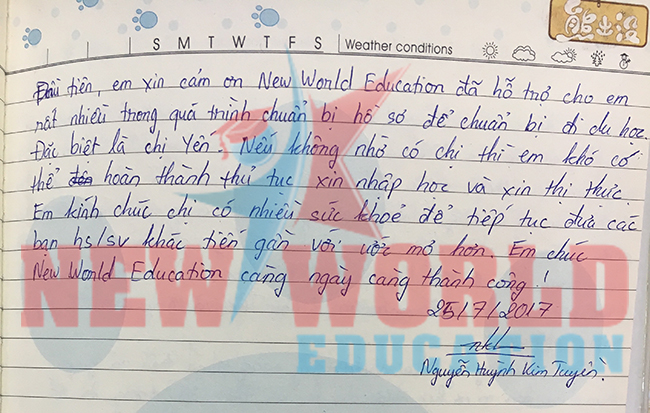 熊出没
S M T W T F S Weather conditions
Đầu tiên, em xin cảm ơn New World Education đã hỗ trợ cho em
rất nhiều trong quá trình chuẩn bị hồ sơ để chuẩn bị đi du học.
Đặc biệt là chị Yên. Nếu không nhờ có chị thì em khó có
thể hoàn thành thủ tục xin nhập học và xin thị thực.
Em kính chúc chị có nhiều sức khoẻ để tiếp tục đưa các
bạn hs/sv khác tiến gần với ước mơ hơn. Em chúc
New World Education càng ngày càng thành công!
25/7/2017
Nguyễn Huỳnh Kim Tuyền.
NEW WORLD
EDUCATION